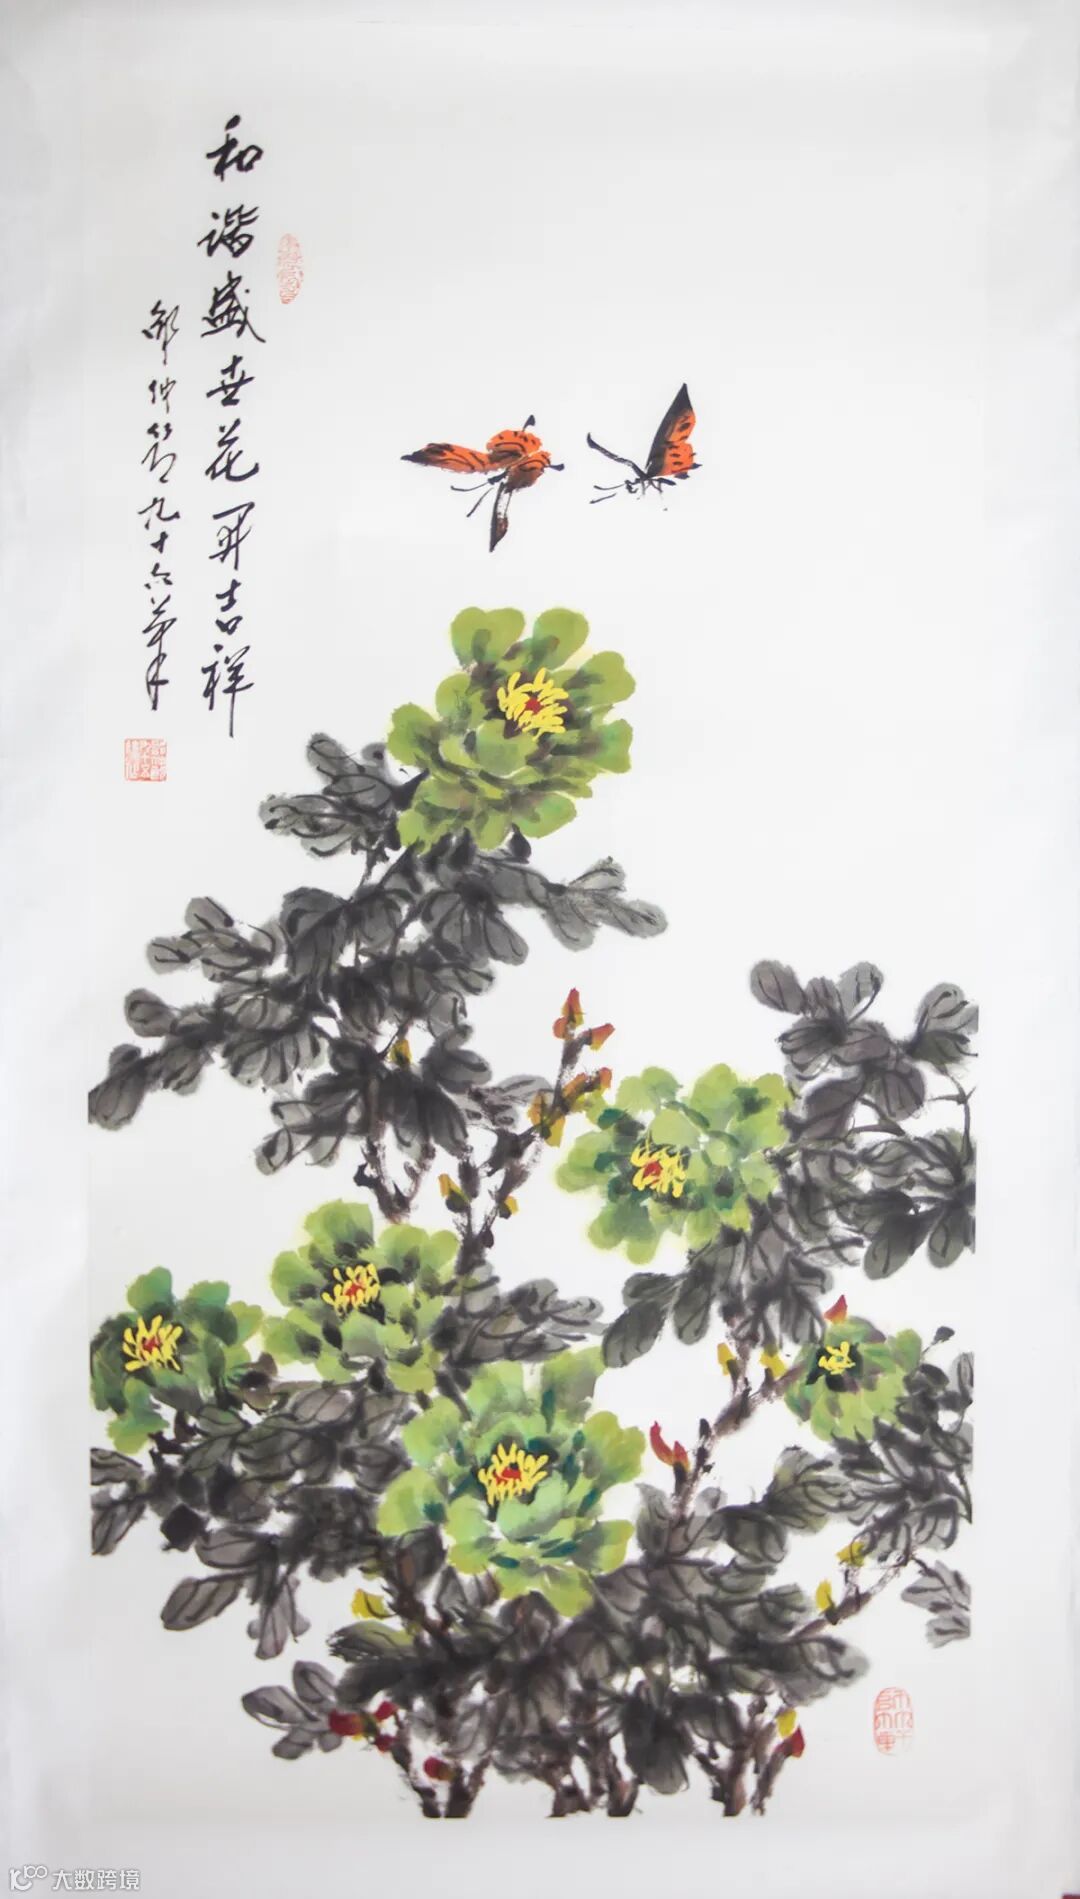 和谐盛世花开吉祥
邵仲节九十六笔
大数跨境